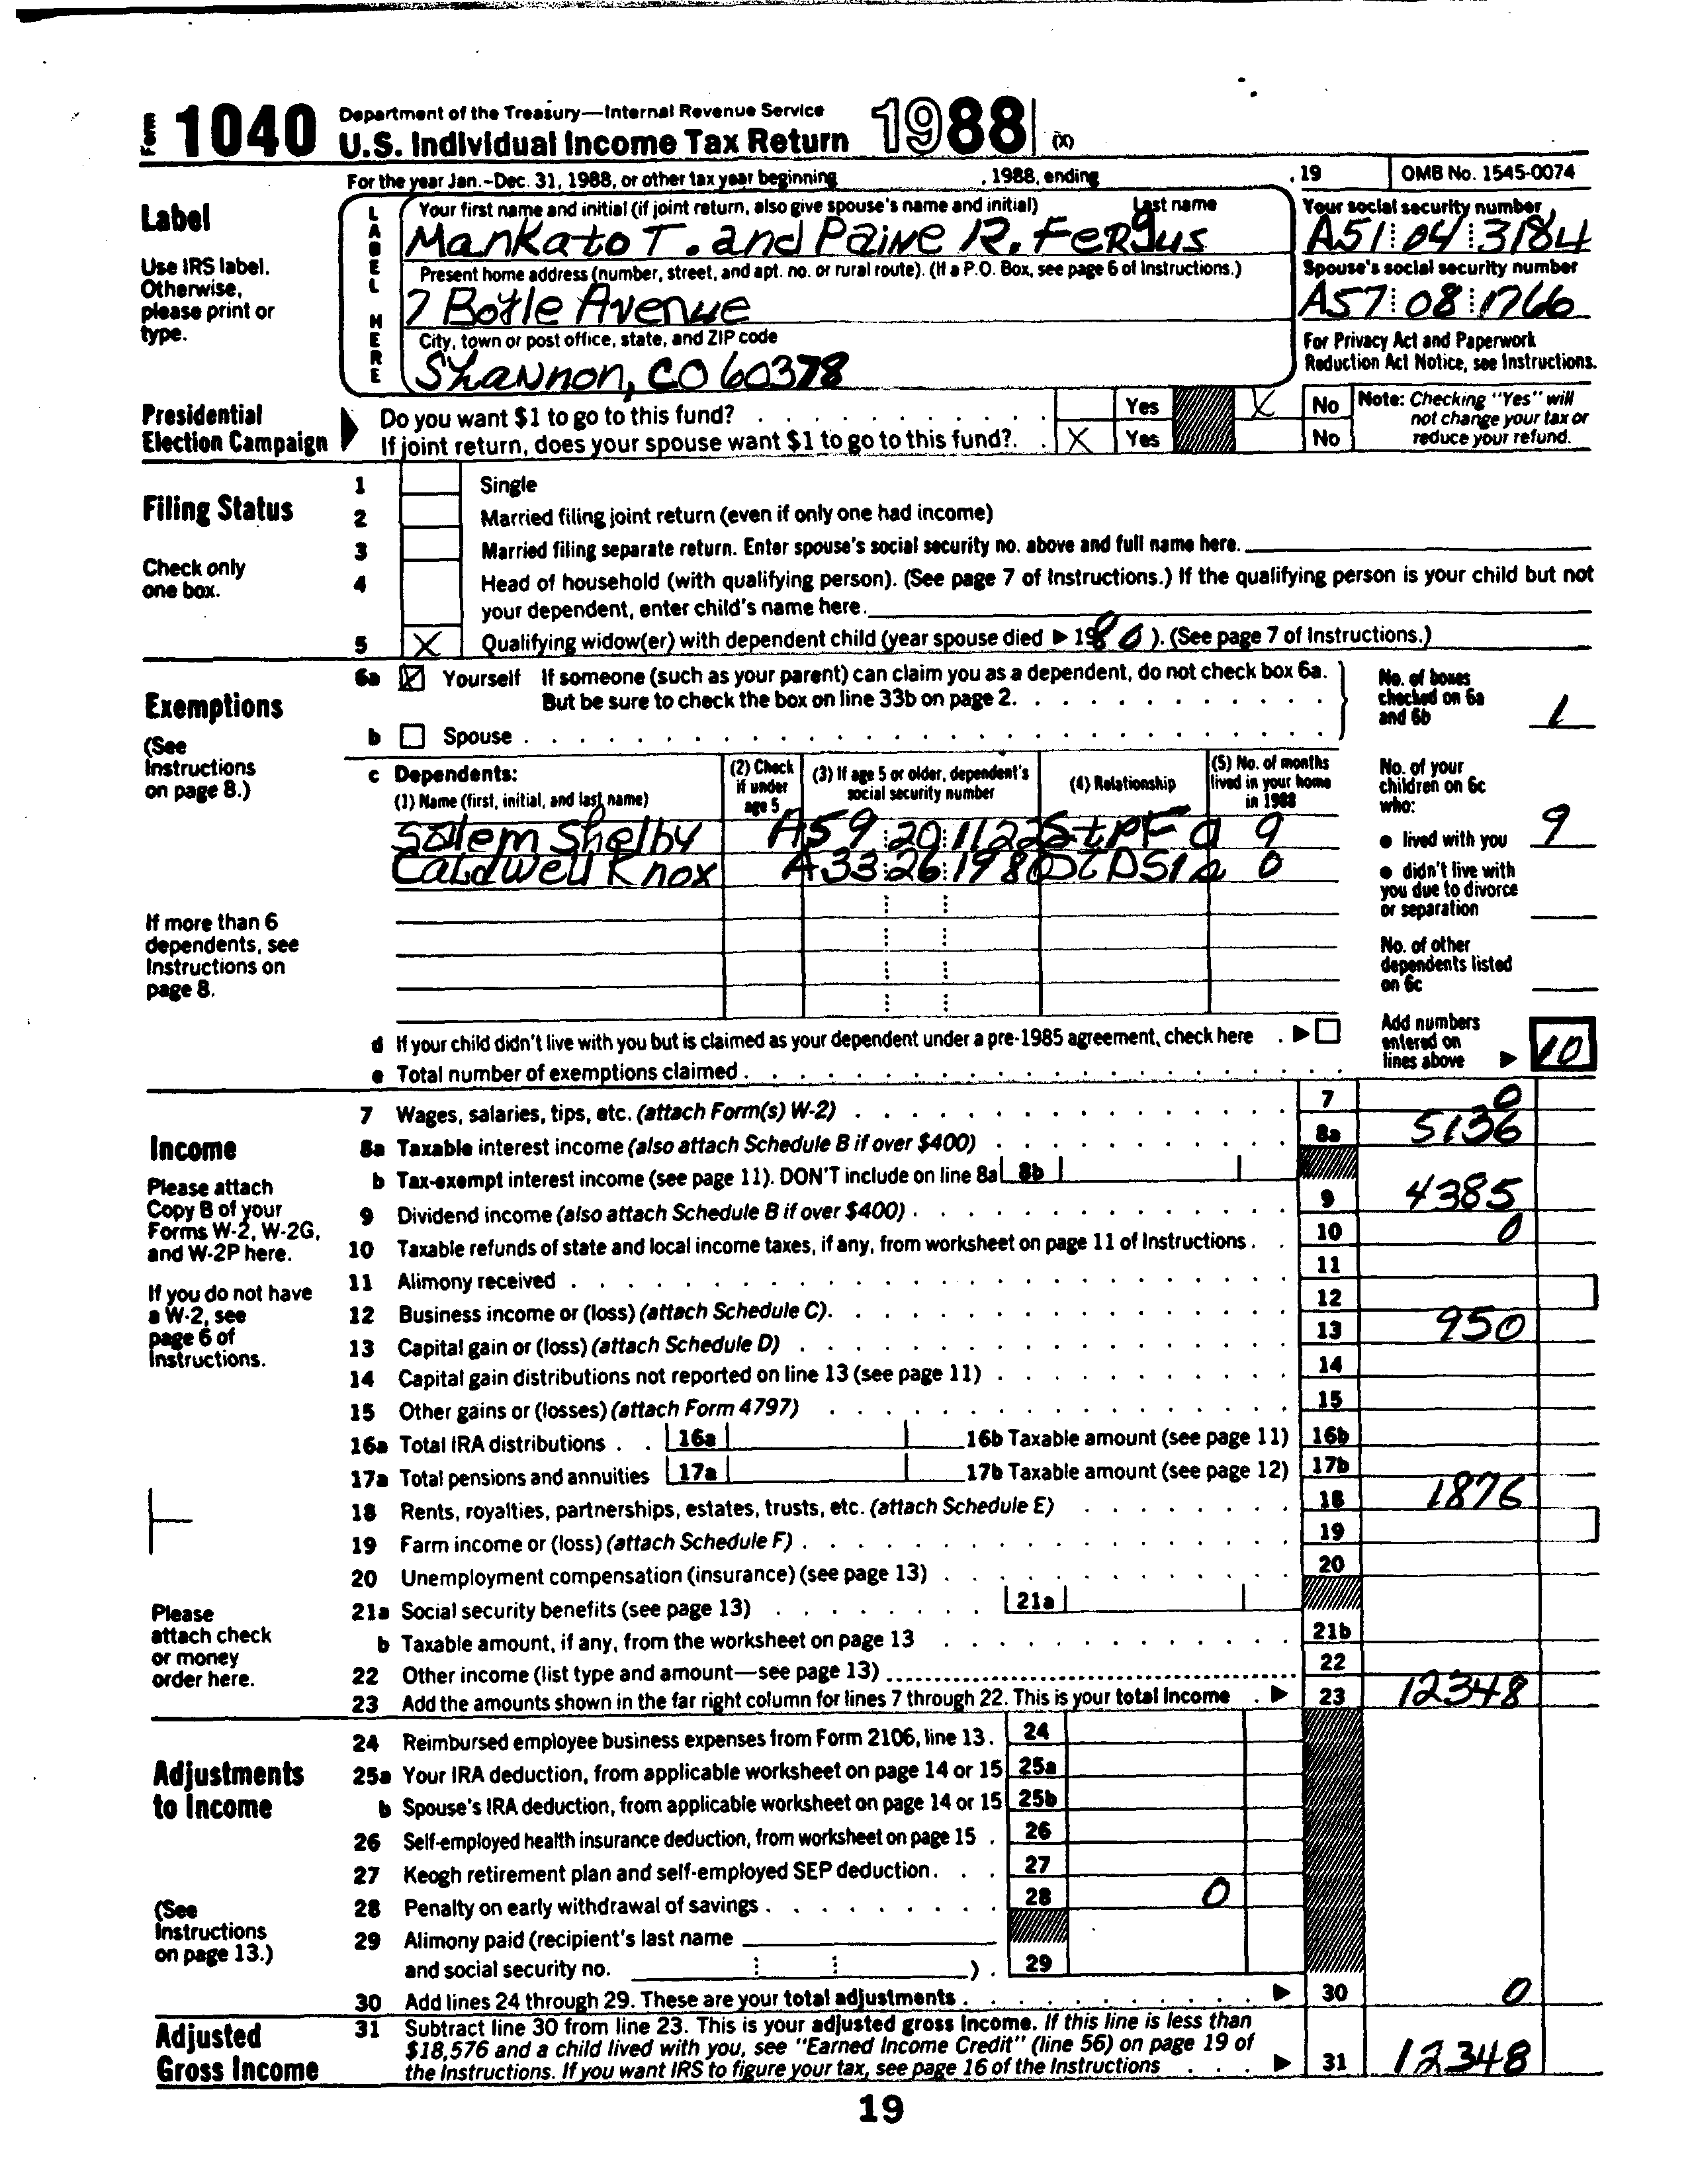 Form 1040 Department of the Treasury—Internal Revenue Service
U.S. Individual Income Tax Return 1988 (X)
For the year Jan.-Dec. 31, 1988, or other tax year beginning , 1988, ending , 19 OMB No. 1545-0074
Label
Use IRS label.
Otherwise,
please print or
type.
LABEL HERE
Your first name and initial (if joint return, also give spouse's name and initial) Last name
Mankato T. and Paine R. Fergus
Your social security number
A51 04 3184
Present home address (number, street, and apt. no. or rural route). (If a P.O. Box, see page 6 of Instructions.)
7 Boyle Avenue
Spouse's social security number
A57 08 1766
City, town or post office, state, and ZIP code
Shannon, CO 60378
For Privacy Act and Paperwork
Reduction Act Notice, see Instructions.
Presidential
Election Campaign
Do you want $1 to go to this fund? Yes X No
If joint return, does your spouse want $1 to go to this fund? X Yes No
Note: Checking "Yes" will
not change your tax or
reduce your refund.
Filing Status
Check only
one box.
1 Single
2 Married filing joint return (even if only one had income)
3 Married filing separate return. Enter spouse's social security no. above and full name here.
4 Head of household (with qualifying person). (See page 7 of Instructions.) If the qualifying person is your child but not
your dependent, enter child's name here.
5 X Qualifying widow(er) with dependent child (year spouse died ▶ 19 ). (See page 7 of Instructions.)
Exemptions
(See
Instructions
on page 8.)
6a X Yourself If someone (such as your parent) can claim you as a dependent, do not check box 6a.
But be sure to check the box on line 33b on page 2.
b Spouse
No. of boxes
checked on 6a
and 6b 1
c Dependents:
(1) Name (first, initial, and last name)
(2) Check
if under
age 5
(3) If age 5 or older, dependent's
social security number
(4) Relationship
(5) No. of months
lived in your home
in 1988
Salem Shelby A59 20 1122 StPF a 9
Caldwell Knox A33 26 1980 0
If more than 6
dependents, see
Instructions on
page 8.
No. of your
children on 6c
who:
• lived with you 9
• didn't live with
you due to divorce
or separation
No. of other
dependents listed
on 6c
d If your child didn't live with you but is claimed as your dependent under a pre-1985 agreement, check here ▶
e Total number of exemptions claimed
Add numbers
entered on
lines above ▶ 10
Income
Please attach
Copy B of your
Forms W-2, W-2G,
and W-2P here.
If you do not have
a W-2, see
page 6 of
Instructions.
Please
attach check
or money
order here.
7 Wages, salaries, tips, etc. (attach Form(s) W-2) 7 0
8a Taxable interest income (also attach Schedule B if over $400) 8a 5136
b Tax-exempt interest income (see page 11). DON'T include on line 8a 8b
9 Dividend income (also attach Schedule B if over $400) 9 4385
10 Taxable refunds of state and local income taxes, if any, from worksheet on page 11 of Instructions 10 0
11 Alimony received 11
12 Business income or (loss) (attach Schedule C) 12
13 Capital gain or (loss) (attach Schedule D) 13 950
14 Capital gain distributions not reported on line 13 (see page 11) 14
15 Other gains or (losses) (attach Form 4797) 15
16a Total IRA distributions 16a 16b Taxable amount (see page 11) 16b
17a Total pensions and annuities 17a 17b Taxable amount (see page 12) 17b
18 Rents, royalties, partnerships, estates, trusts, etc. (attach Schedule E) 18 1876
19 Farm income or (loss) (attach Schedule F) 19
20 Unemployment compensation (insurance) (see page 13) 20
21a Social security benefits (see page 13) 21a
b Taxable amount, if any, from the worksheet on page 13 21b
22 Other income (list type and amount—see page 13) 22
23 Add the amounts shown in the far right column for lines 7 through 22. This is your total income ▶ 23 12348
Adjustments
to Income
(See
Instructions
on page 13.)
24 Reimbursed employee business expenses from Form 2106, line 13. 24
25a Your IRA deduction, from applicable worksheet on page 14 or 15 25a
b Spouse's IRA deduction, from applicable worksheet on page 14 or 15 25b
26 Self-employed health insurance deduction, from worksheet on page 15 26
27 Keogh retirement plan and self-employed SEP deduction 27
28 Penalty on early withdrawal of savings 28 0
29 Alimony paid (recipient's last name
and social security no. ) 29
30 Add lines 24 through 29. These are your total adjustments ▶ 30 0
Adjusted
Gross Income
31 Subtract line 30 from line 23. This is your adjusted gross income. If this line is less than
$18,576 and a child lived with you, see "Earned Income Credit" (line 56) on page 19 of
the Instructions. If you want IRS to figure your tax, see page 16 of the Instructions ▶ 31 12348
19